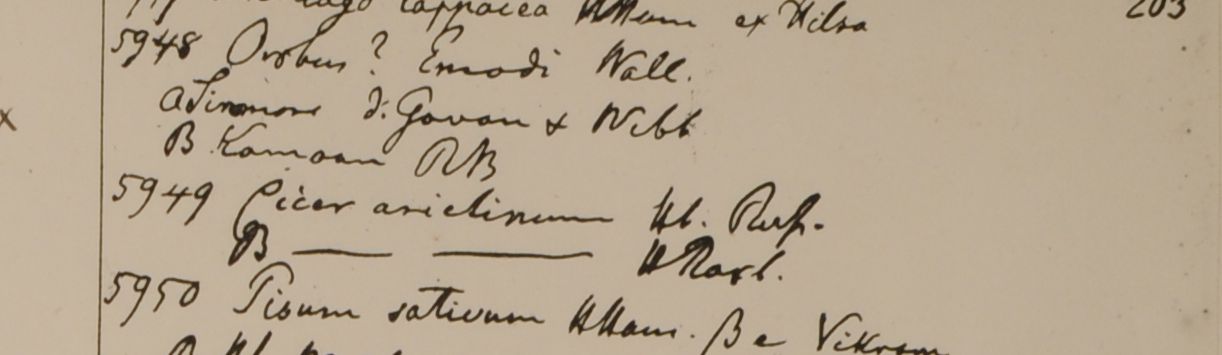 lappacea HHam ex Hilsa 203
5948 Orobus? Emodi Wall.
a Sirmore D. Govan & Webb
B Kamoan RB
5949 Cicer arietinum Hb. Rufs.
B — — HRoxl.
5950 Pisum sativum HHam. B e Vikram
B Hb.